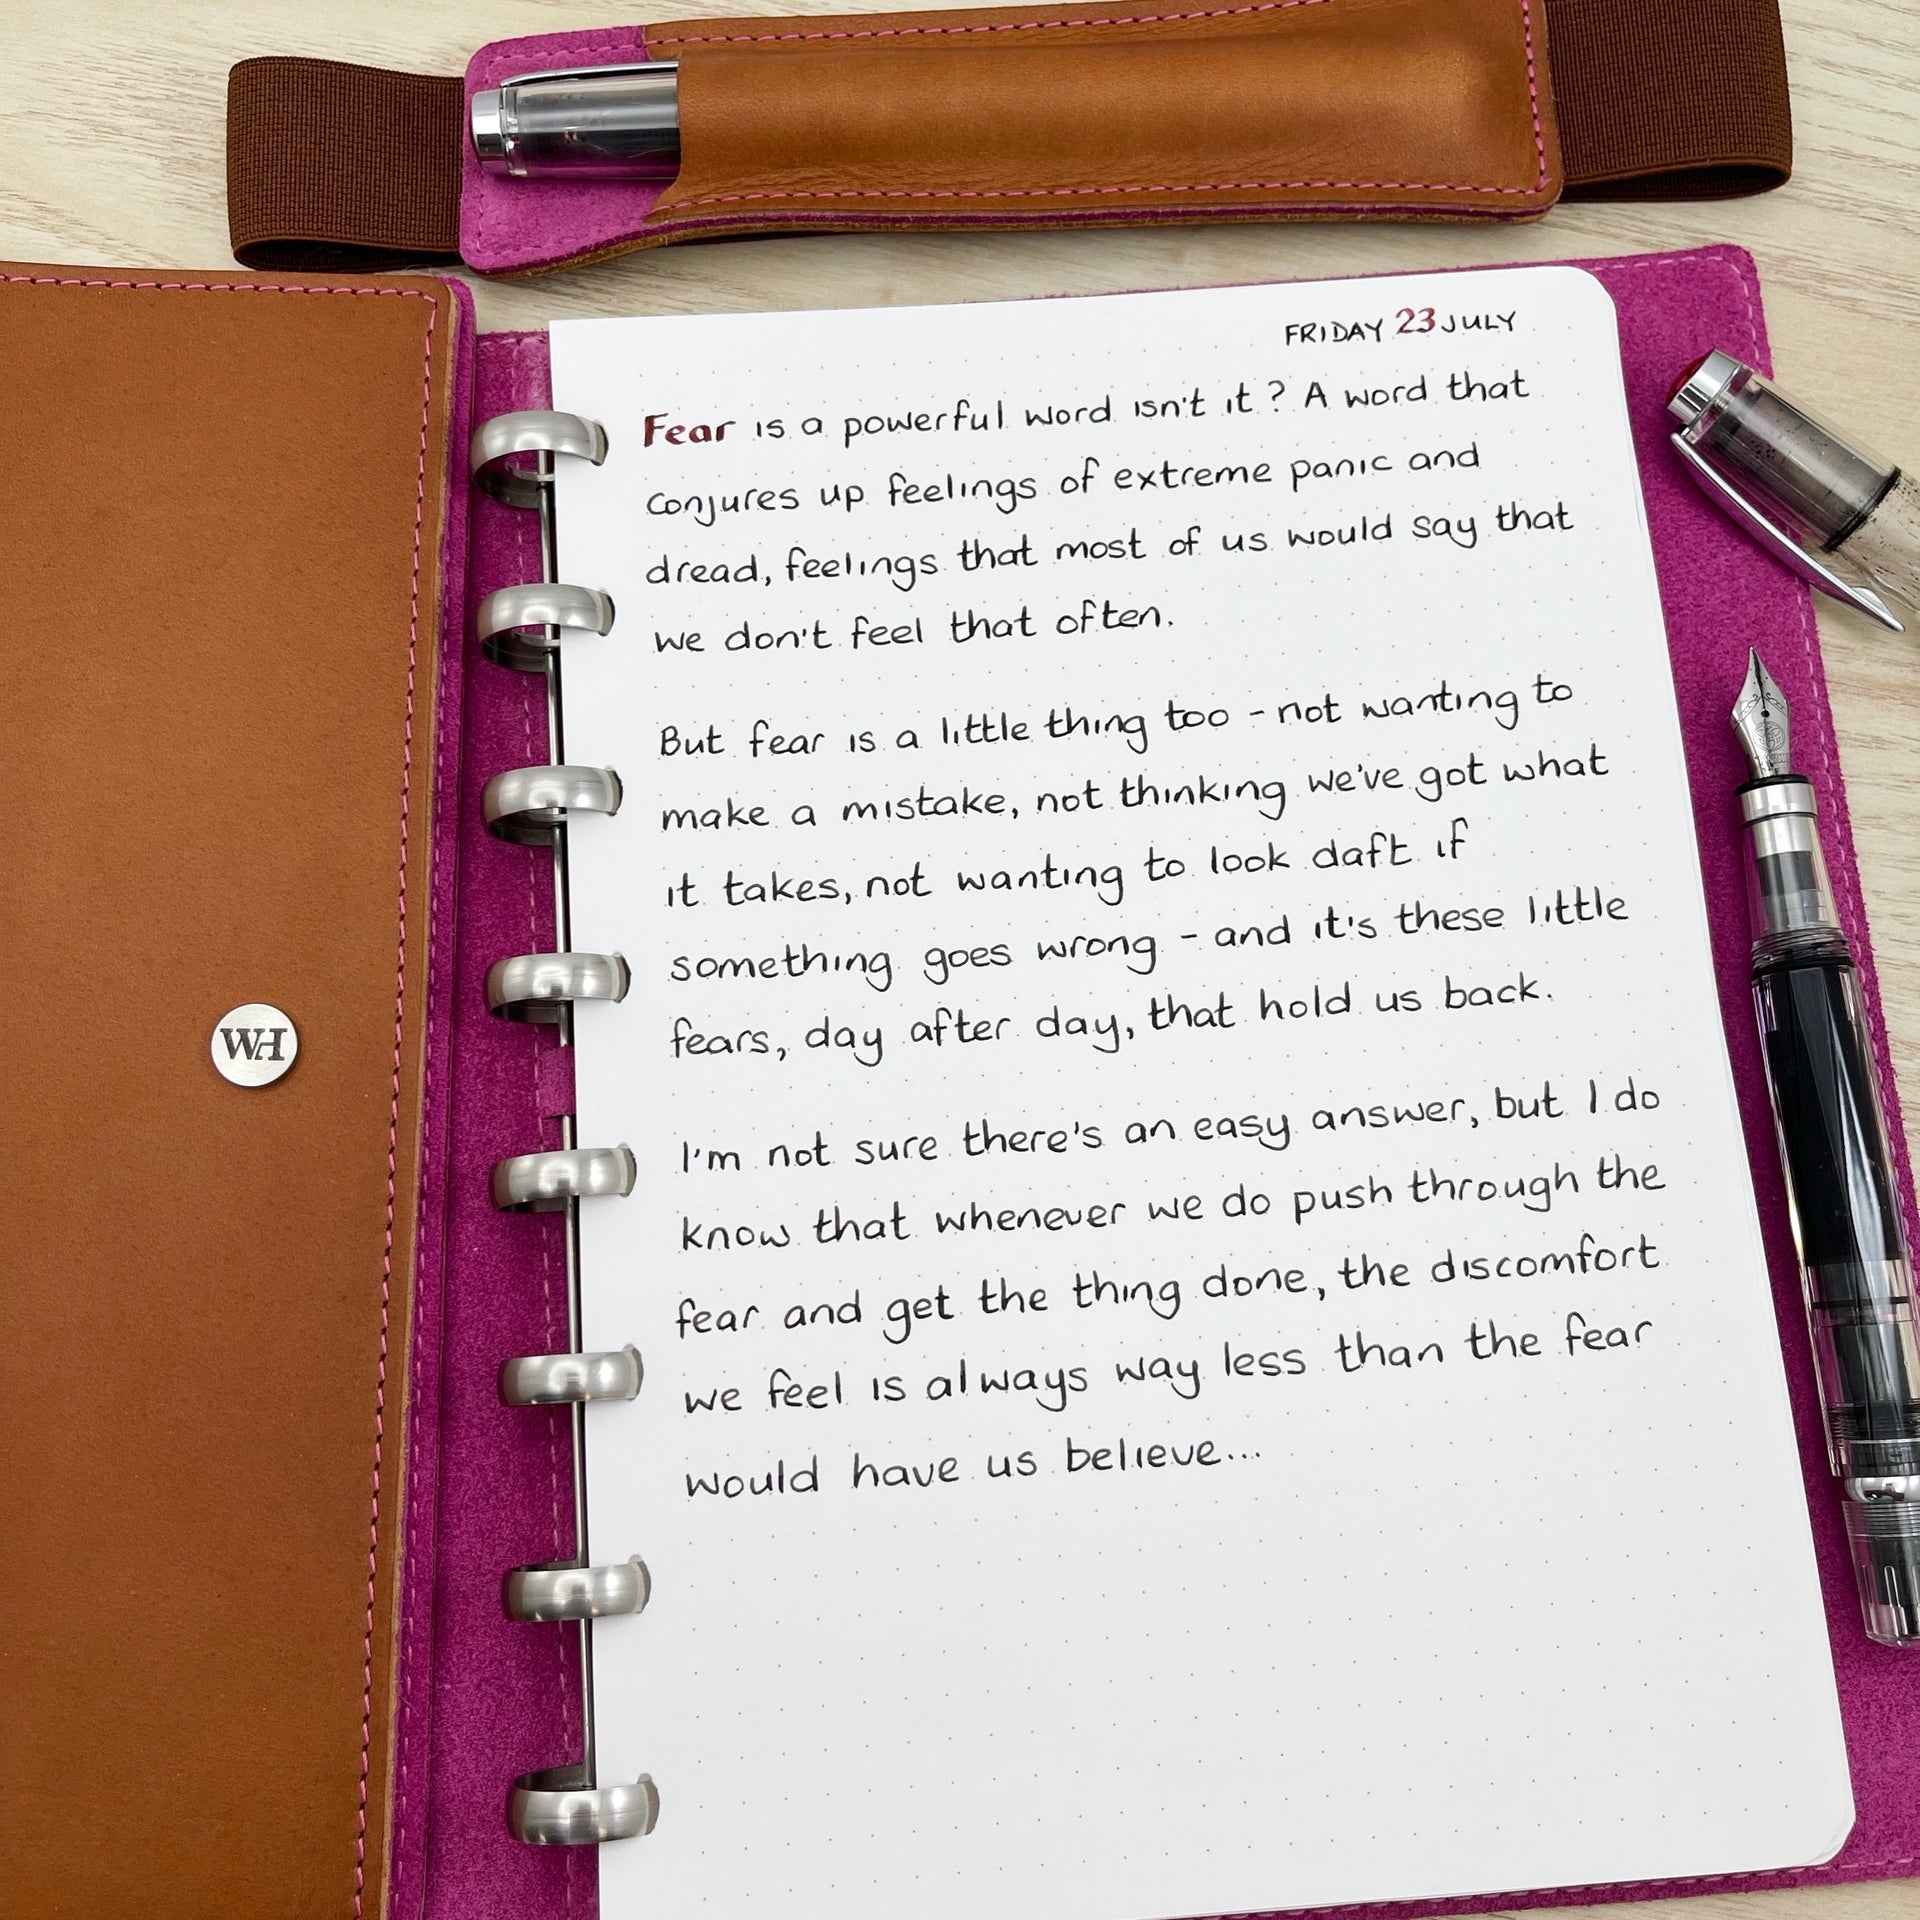 FRIDAY 23 JULY
Fear is a powerful word isn't it? A word that
conjures up feelings of extreme panic and
dread, feelings that most of us would say that
we don't feel that often.
But fear is a little thing too - not wanting to
make a mistake, not thinking we've got what
it takes, not wanting to look daft if
something goes wrong - and it's these little
fears, day after day, that hold us back.
I'm not sure there's an easy answer, but I do
know that whenever we do push through the
fear and get the thing done, the discomfort
we feel is always way less than the fear
would have us believe...
WH